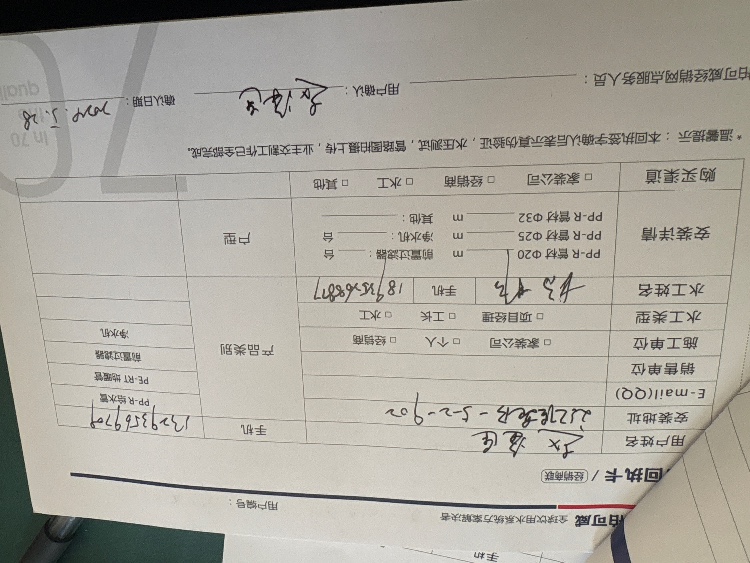 伯可威 全球饮用水系统方案解决者
用户编号：
回执卡 / 经销商联
用户姓名
手机 13293569708
安装地址 5-2-902
E-mail(QQ)
销售单位
施工单位 □ 家装公司 □ 个人 □ 经销商
水工类型 □ 项目经理 □ 工长 □ 水工
水工姓名 手机 18935268877
产品类别
PP-R 给水管
PE-RT 地暖管
前置过滤器
净水机
安装详情
PP-R 管材 Φ20 m 前置过滤器： 台
PP-R 管材 Φ25 m 净水机： 台
PP-R 管材 Φ32 m 其他：
户型
购买渠道 □ 家装公司 □ 经销商 □ 水工 □ 其他
*温馨提示：本回执签字确认后表示真伪验证，水压测试，管路图拍摄上传，业主交割工作已全部完成。
伯可威经销网点服务人员：
用户确认：
确认日期：
In 70
手机